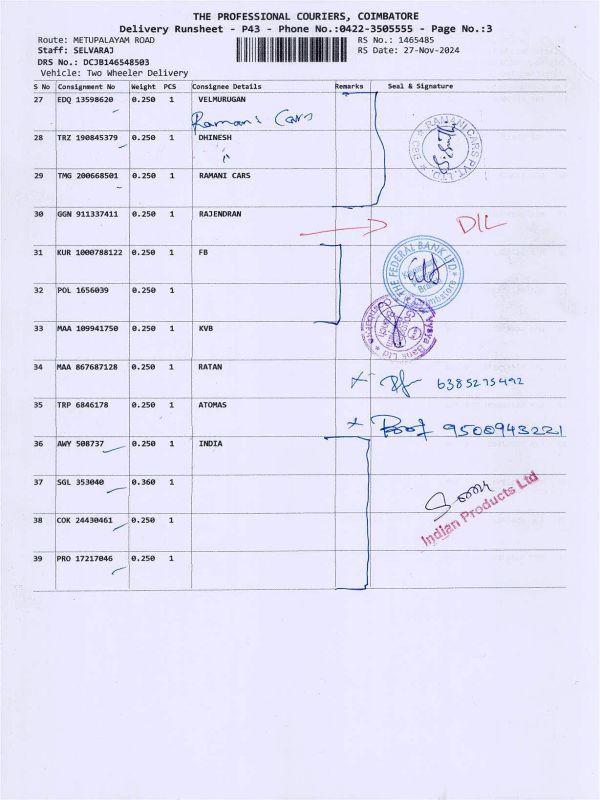 THE PROFESSIONAL COURIERS, COIMBATORE
Delivery Runsheet - P43 - Phone No.:0422-3505555 - Page No.:3
Route: METUPALAYAM ROAD RS No.: 1465485
Staff: SELVARAJ RS Date: 27-Nov-2024
DRS No.: DCJB146548503
Vehicle: Two Wheeler Delivery
S No Consignment No Weight PCS Consignee Details Remarks Seal & Signature
27 EDQ 13598620 0.250 1 VELMURUGAN
Ramani Cars
28 TRZ 190845379 0.250 1 DHINESH
RAMANI CARS PVT. LTD. CBE
29 TMG 200668501 0.250 1 RAMANI CARS
30 GGN 911337411 0.250 1 RAJENDRAN
D/L
31 KUR 1000788122 0.250 1 FB
THE FEDERAL BANK LTD.
Branch
Coimbatore
32 POL 1656039 0.250 1
33 MAA 109941750 0.250 1 KVB
Vysya Bank Ltd
34 MAA 867687128 0.250 1 RATAN
6385275492
35 TRP 6846178 0.250 1 ATOMAS
9500943221
36 AWY 508737 0.250 1 INDIA
37 SGL 353040 0.360 1
Indian Products Ltd
38 COK 24430461 0.250 1
39 PRO 17217046 0.250 1